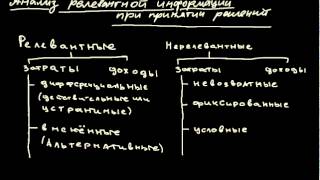 Анализ релевантной информации
при принятии решений
Релевантные
Нерелевантные
затраты доходы
затраты доходы
дифференциальные
(действительные или
устранимые)
вменённые
(Альтернативные)
невозвратные
фиксированные
условные